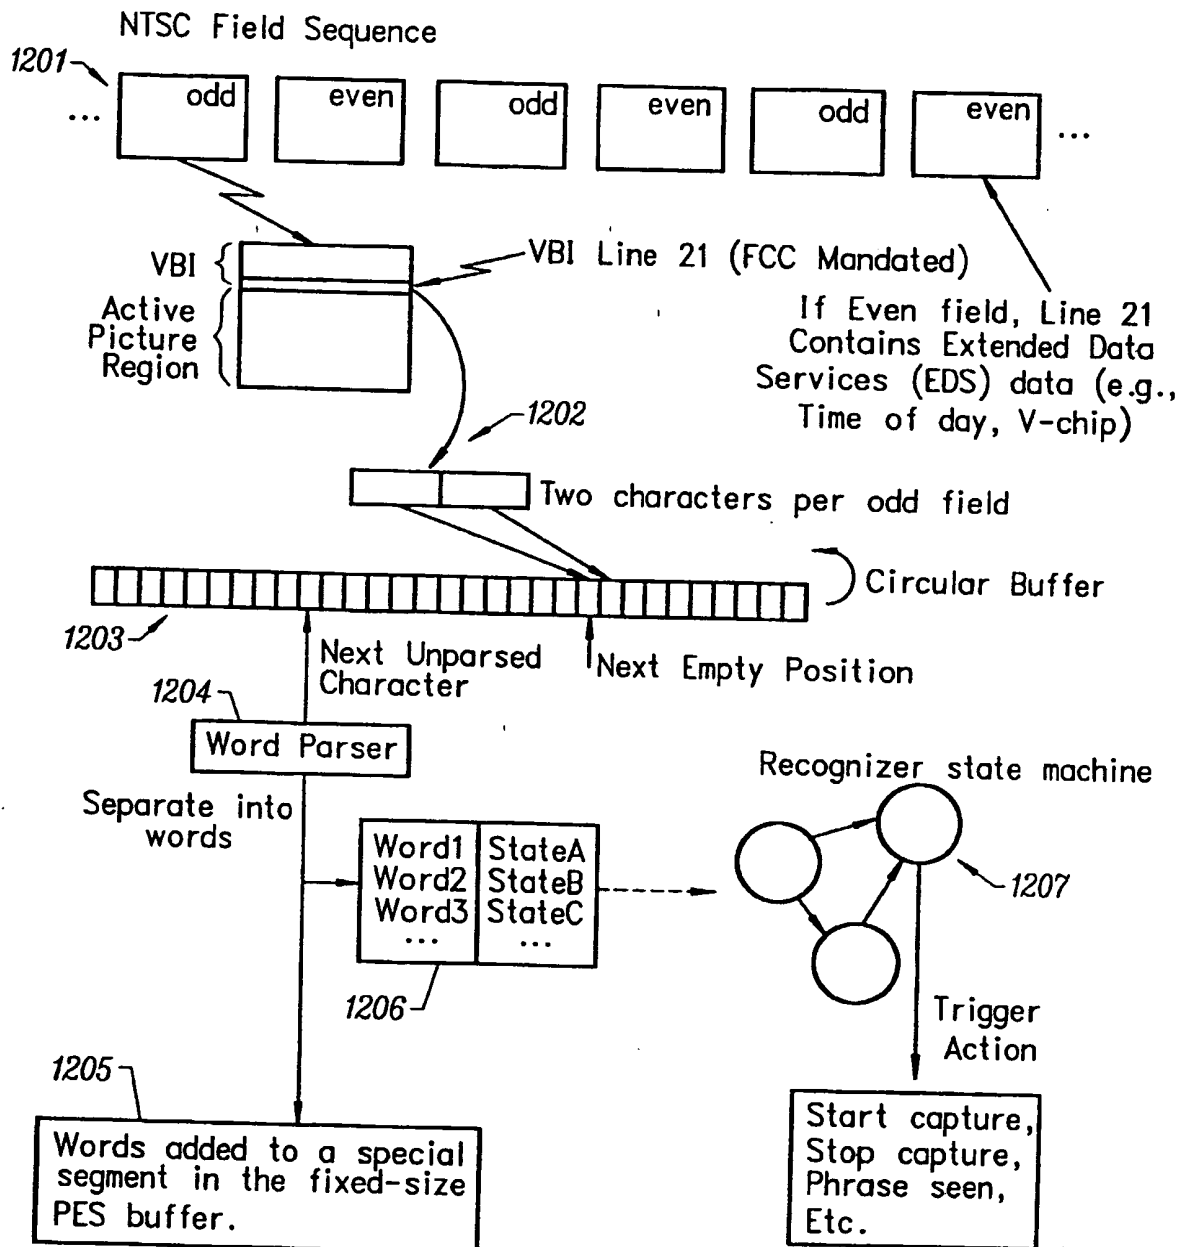 NTSC Field Sequence
1201
... odd even odd even odd even ...
VBI
VBI Line 21 (FCC Mandated)
Active
Picture
Region
If Even field, Line 21
Contains Extended Data
Services (EDS) data (e.g.,
Time of day, V-chip)
1202
Two characters per odd field
Circular Buffer
1203
Next Unparsed
Character
Next Empty Position
1204
Word Parser
Separate into
words
Recognizer state machine
Word1 StateA
Word2 StateB
Word3 StateC
... ...
1206
1207
Trigger
Action
1205
Words added to a special
segment in the fixed-size
PES buffer.
Start capture,
Stop capture,
Phrase seen,
Etc.